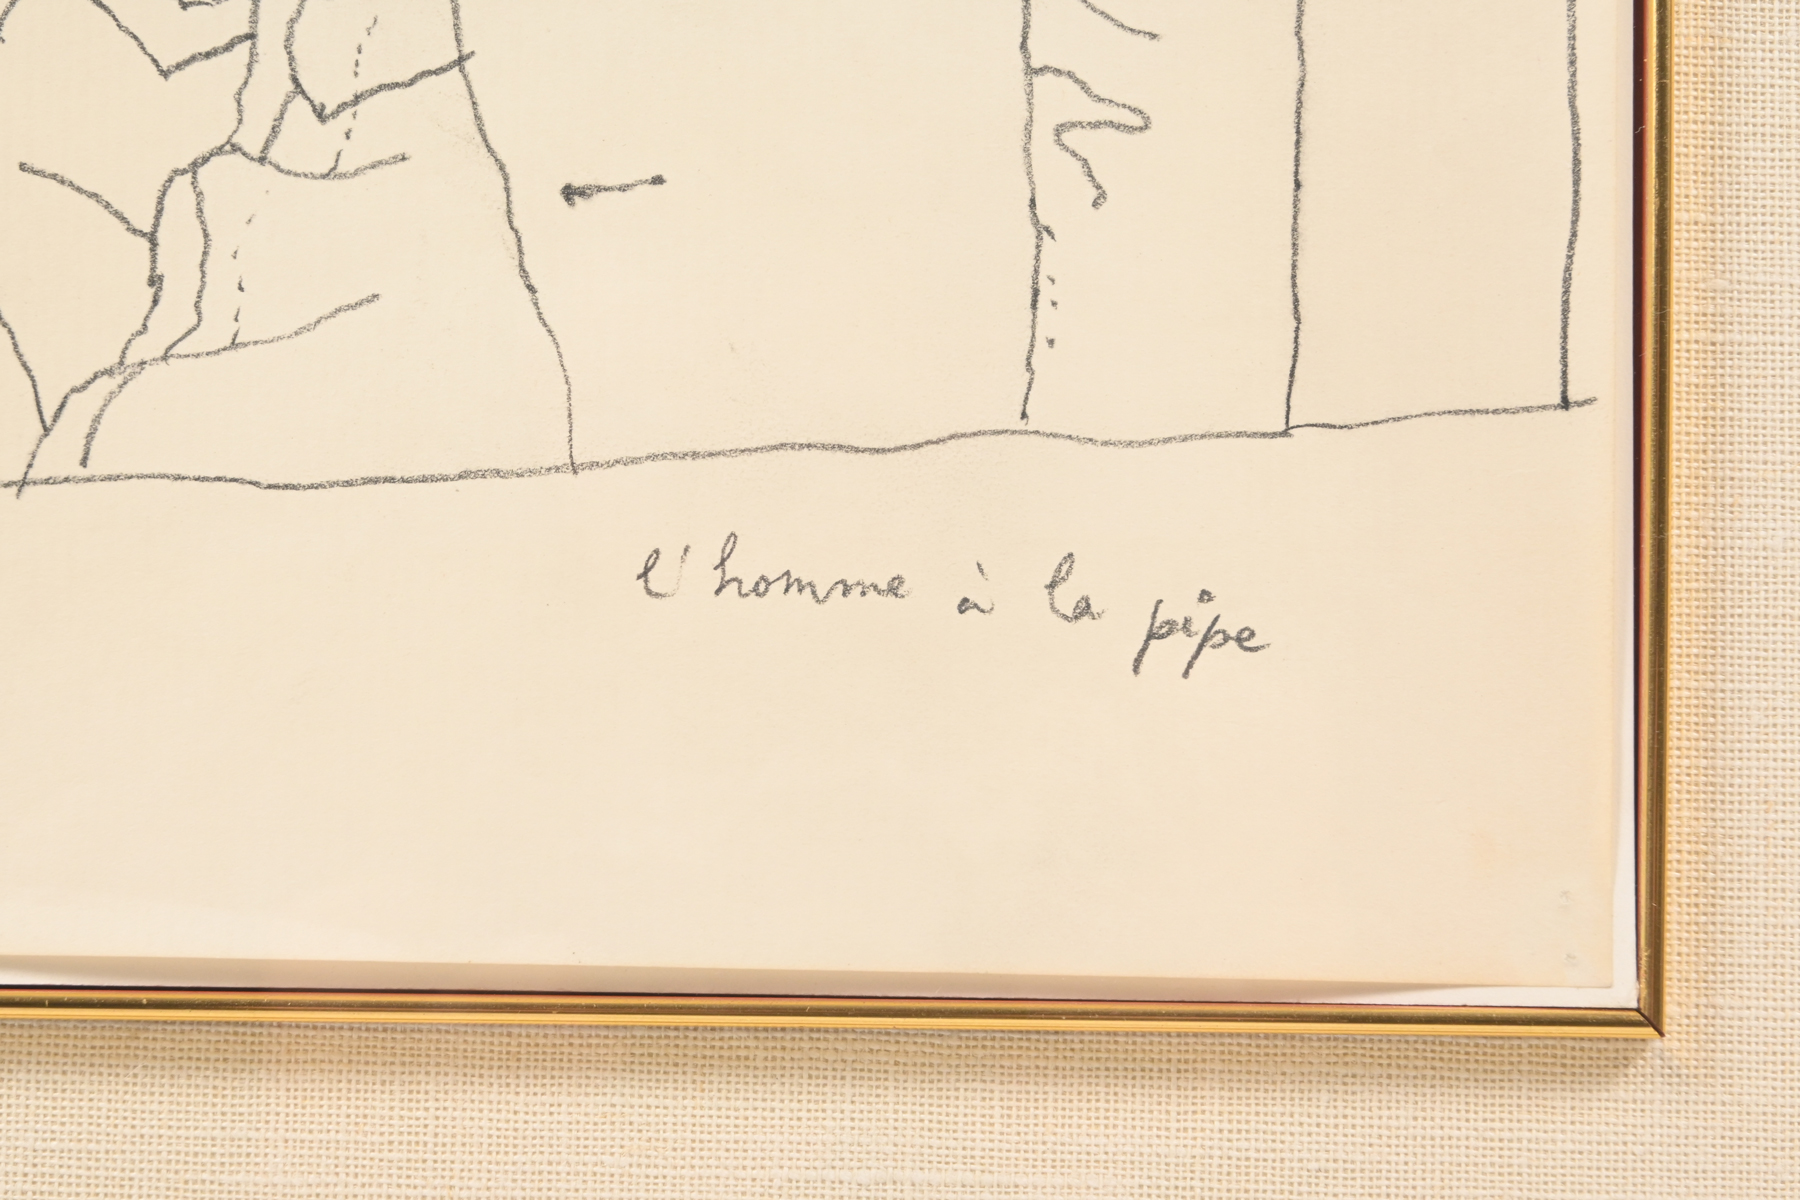 l'homme à la pipe